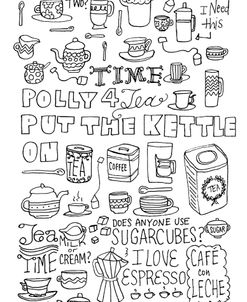 TWO?
I Need
this
TIME
POLLY 4 Tea
PUT THE KETTLE
ON
TEA
COFFEE
TEA
DOES ANYONE USE
SUGARCUBES?
SUGAR
Tea
TIME
MILK
or
CREAM?
I LOVE
ESPRESSO
CAFÉ
con
LECHE